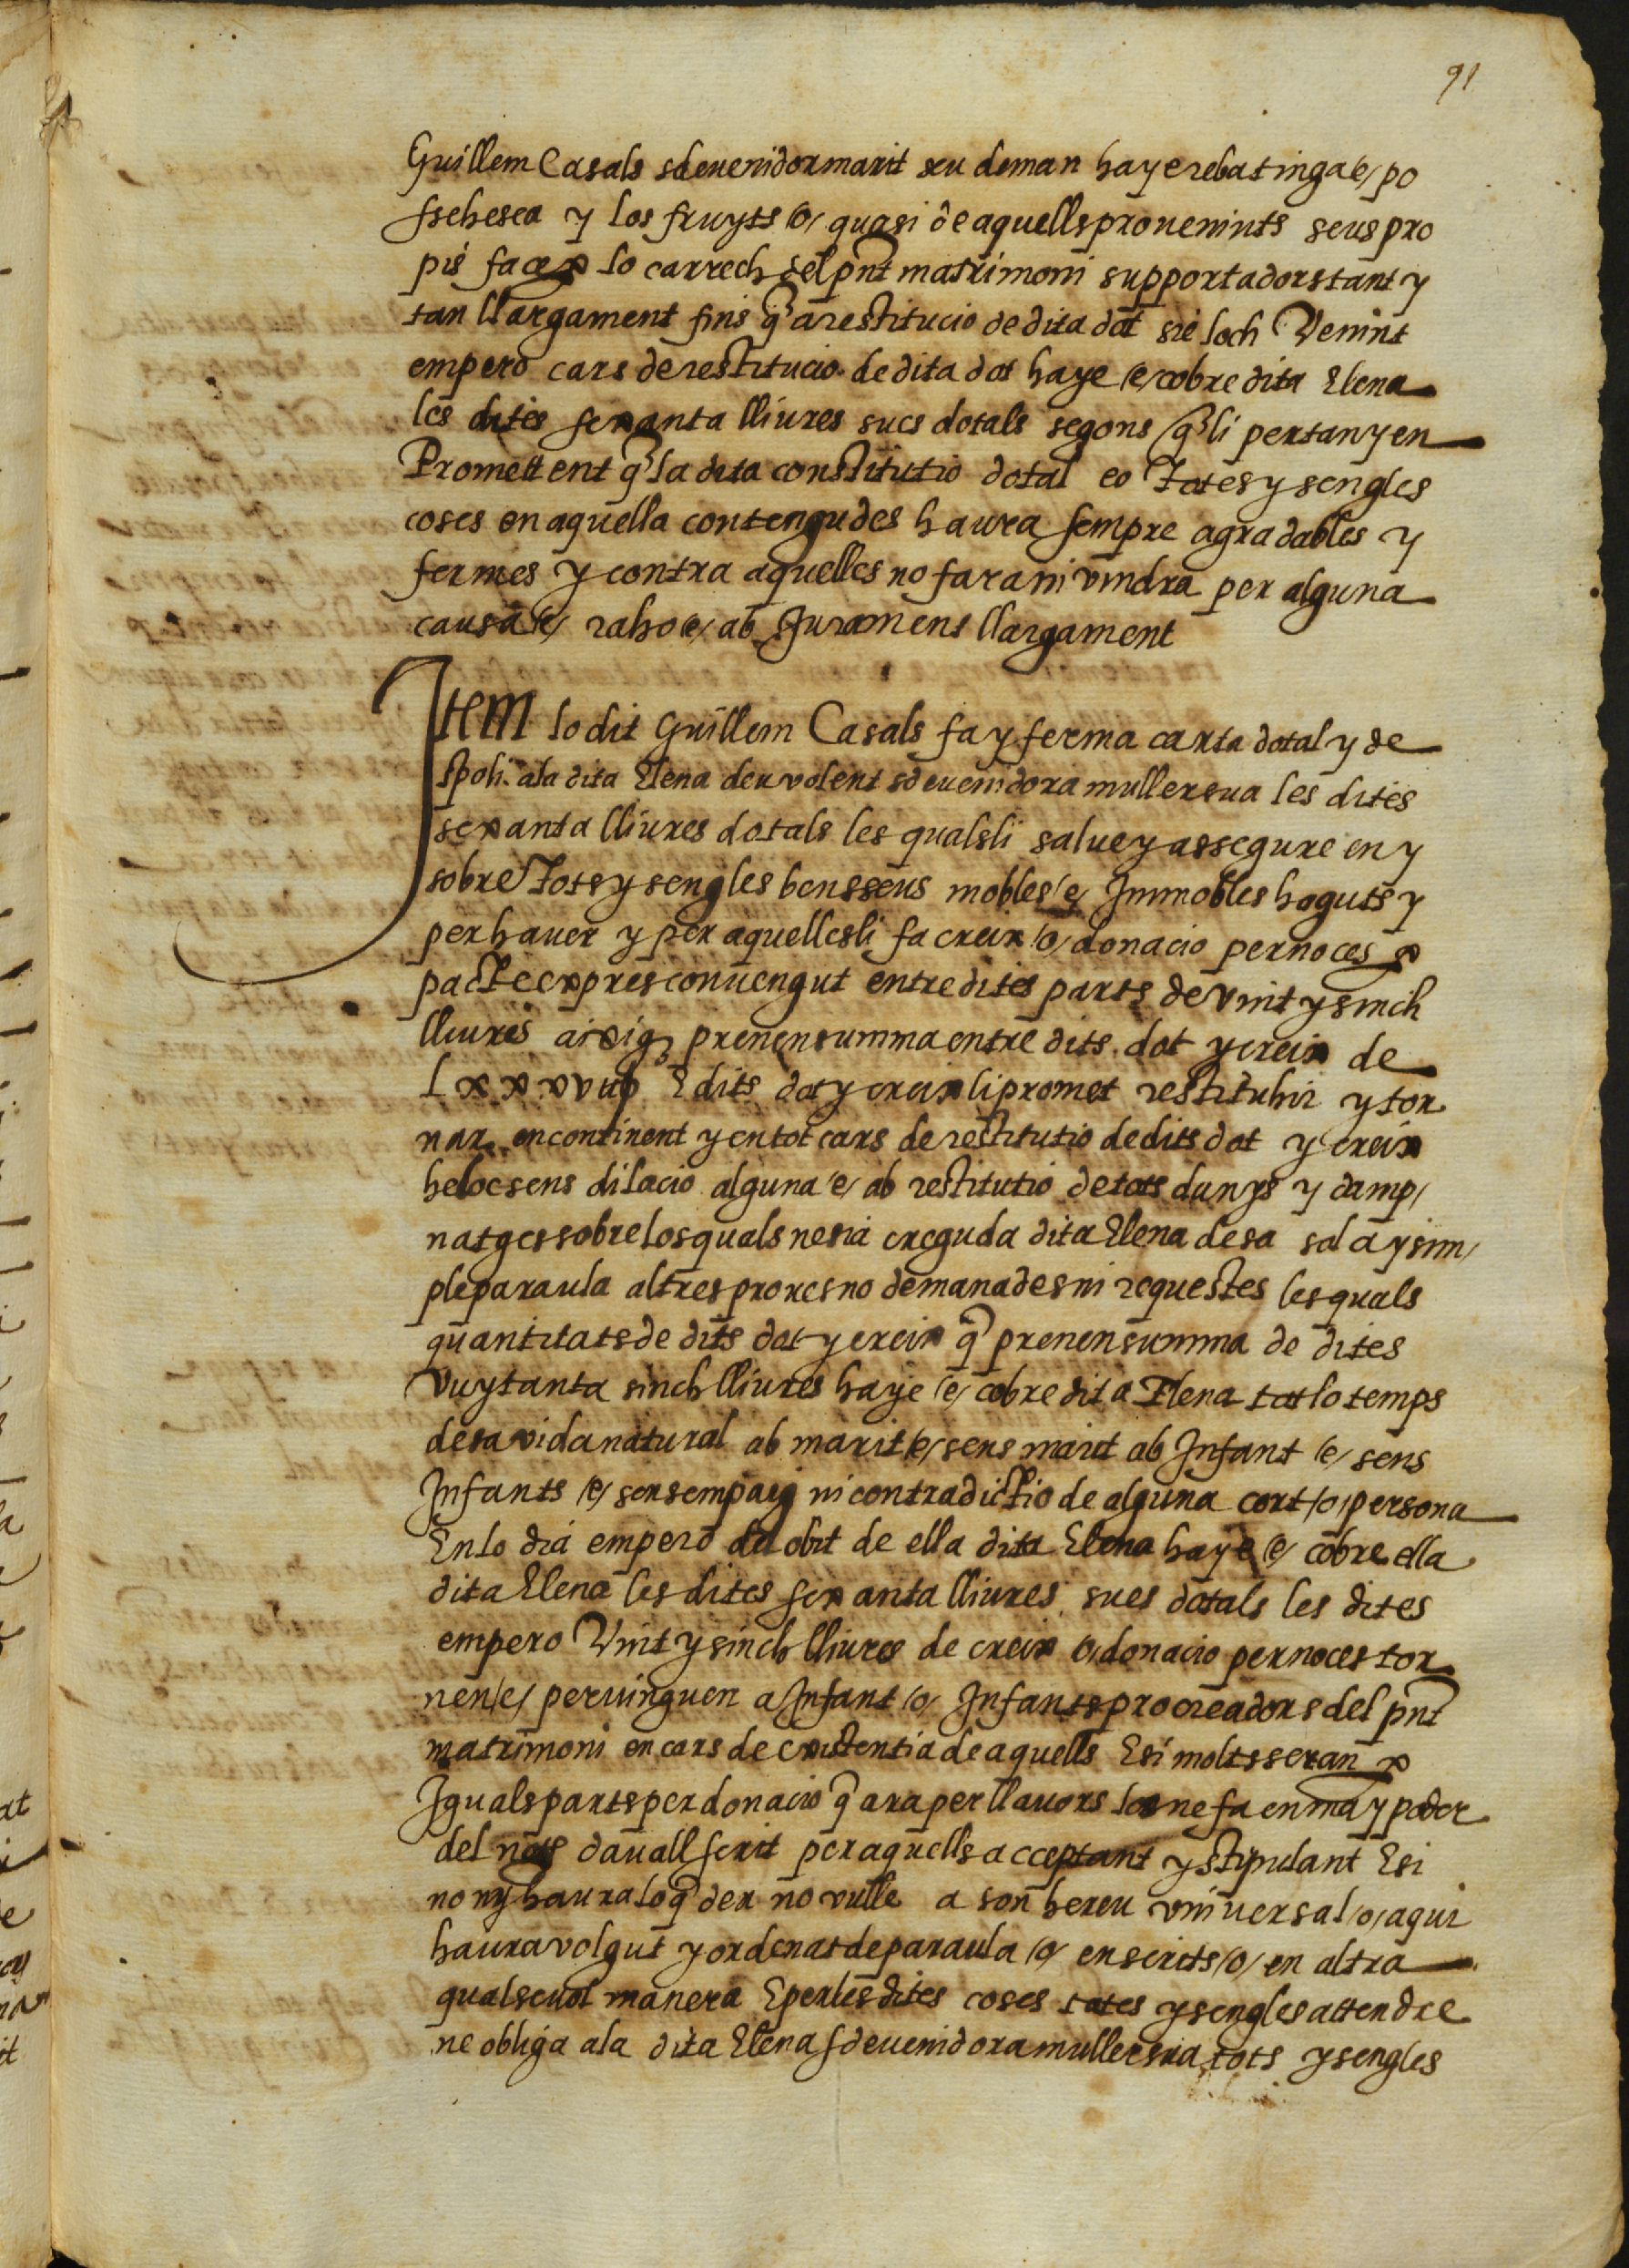 91
Guillem Casals sdevenidor marit seu deman haye reba tinga /e/ po
ssehesca y los fruyts /o/ quasi de aquells provenints seus pro
pis face p lo carrech del pnt matrimoni supportador stant y
tan llargament fins q a restitucio de dita dot sie loch Venint
empero cars de restitucio de dita dot haye /e/ cobre dita Elena
les dites sexanta lliures sues dotals segons q li pertanyen
Promettent q la dita constitutio dotal eo Totes y sengles
coses en aquella contengudes haura sempre agradables y
fermes y contra aquelles no fara ni vindra per alguna
causa /e/ raho /e/ ab Juramens llargament
Item lo dit Guillem Casals fa y ferma carta dotal y de
spoli ala dita Elena den volent sdevenidora muller sua les dites
sexanta lliures dotals les quals li salue y assegure en y
sobre Tots y sengles bens seus mobles /e/ Immobles haguts y
per haver y per aquelles li fa creix /o/ donacio per noces p
pacte expres convengut entre dites parts de vint y sinch
lliures aixi q prenen summa entre dits dot y creix de
Lxxxv E dits dot y creix li promet restituhir y tor
nar encontinent y en tot cars de restitutio de dits dot y creix
he loc sens dilacio alguna /e/ ab restitutio de tots danys y damp/
natges sobre los quals ne sia creguda dita Elena de sa sola y sim/
ple paraula altres proves no demanades ni requestes les quals
quantitats de dits dot y creix q prenen summa de dites
vuytanta sinch lliures haye /e/ cobre dita Elena tot lo temps
de sa vida natural ab marit /e/ sens marit ab Infant /e/ sens
Infants /e/ sens empaig ni contradictio de alguna cort /o/ persona
En lo dia empero del obit de ella dita Elena haye /e/ cobre ella
dita Elena les dites sexanta lliures sues dotals les dites
empero Vint y sinch lliures de creix o/ donacio per noces tor
nen /e/ pervinguen a Infant /o/ Infants procreadors del pnt
matrimoni en cars de existentia de aquells E si molts seran p
Iguals parts per donacio q ara per llavors los ne fa en ma y poder
del nott davall scrit per aquells acceptant y stipulant E si
no ny haura lo q deu no vulle a son hereu universal /o/ a qui
haura volgut y ordenat de paraula /o/ en scrits /o/ en altra
qualsevol manera E per les dites coses totes y sengles attendre
ne obliga ala dita Elena sdevenidora muller sua tots y sengles